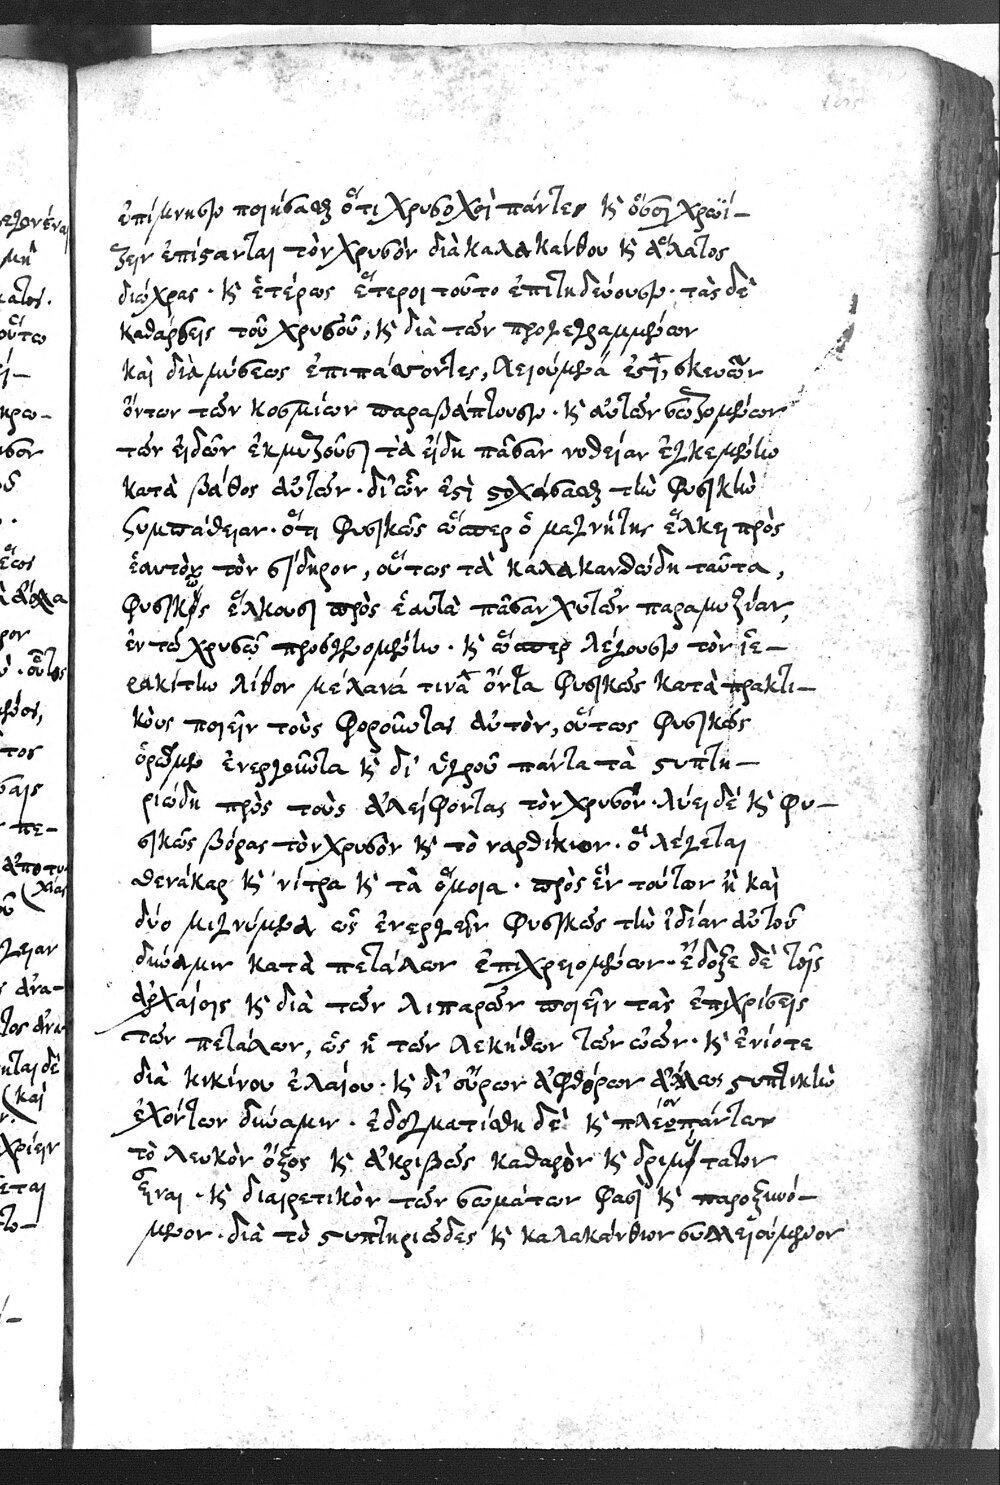 ἐπίμνησιν ποιήσασθαι ὅτι χρυσοχόοι πάντες κ ὅσοι χρωΐ-
ζειν ἐπίστανται τὸν χρυσὸν διὰ καλακάνθου κ ἅλατος
διώχρας· κ ἑτέρως ἕτεροι τοῦτο ἐπιτηδεύουσιν· τὰς δὲ
καθάρσεις τοῦ χρυσοῦ, κ διὰ τῶν προγεγραμμένων
καὶ διὰ μίσεως ἐπιπάσσοντες, λειούμενά ἐστι, σκευῶν
ὄντων τῶν κοσμίων παραβάπτουσιν· κ αὐτῶν σωζομένων
τῶν εἰδῶν ἐκμυζοῦσι τὰ εἴδη πᾶσαν νοθείαν ἐγκειμένην
κατὰ βάθος αὐτῶν· δι' ὧν ἐστὶ στοχάσασθαι τὴν φυσικὴν
συμπάθειαν· ὅτι φυσικῶς ὥσπερ ὁ μαγνήτης ἕλκει πρὸς
ἑαυτὸν τὸν σίδηρον, οὕτως τὰ καλακανθώδη ταῦτα,
φυσικῶς ἕλκουσι πρὸς ἑαυτὰ πᾶσαν χυτῶν παραμυξίαν,
ἐν τῶ χρυσῶ προσγινομένην· κ ὥσπερ λέγουσιν τὸν ἱε-
ρακίτην λίθον μέλανά τινα ὄντα φυσικῶς κατὰ πρακτι-
κοὺς ποιεῖν τοὺς φοροῦντας αὐτὸν, οὕτως φυσικῶς
ὁρῶμεν ἐνεργοῦντα κ δι' ὑγροῦ πάντα τὰ στυπτη-
ριώδη πρὸς τοὺς ἀλείφοντας τὸν χρυσὸν· λύει δὲ κ φυ-
σικῶς βόρας τὸν χρυσὸν κ τὸ ναρθίκιον· ὃ λέγεται
θενάκαρ κ νίτρα κ τὰ ὅμοια· πρὸς ἓν τούτων ἢ καὶ
δύο μιγνύμενα ὡς ἐνεργεῖν φυσικῶς τὴν ἰδίαν αὐτοῦ
δύναμιν κατὰ πετάλων ἐπιχρειομένων· ἔδοξε δὲ τοῖς
ἀρχαίοις κ διὰ τῶν λιπαρῶν ποιεῖν τὰς ἐπιχρίσεις
τῶν πετάλων, ὡς ἢ τῶν λεκήθων τῶν ὠῶν· κ ἐνίοτε
διὰ κικίνου ἐλαίου· κ δι' οὔρων ἀφθόρων ἄλλως στυπτικὴν
ἐχόντων δύναμιν· ἐδογματίσθη δὲ κ πλέον πάντων
τὸ λευκὸν ὄξος κ ἀκριβῶς καθαρὸν κ δριμύτατον
εἶναι· κ διαιρετικὸν τῶν σωμάτων φασὶ κ παροξυνό-
μενον· διὰ τὸ στυπτηριῶδες κ καλακάνθιον συλλειούμενον